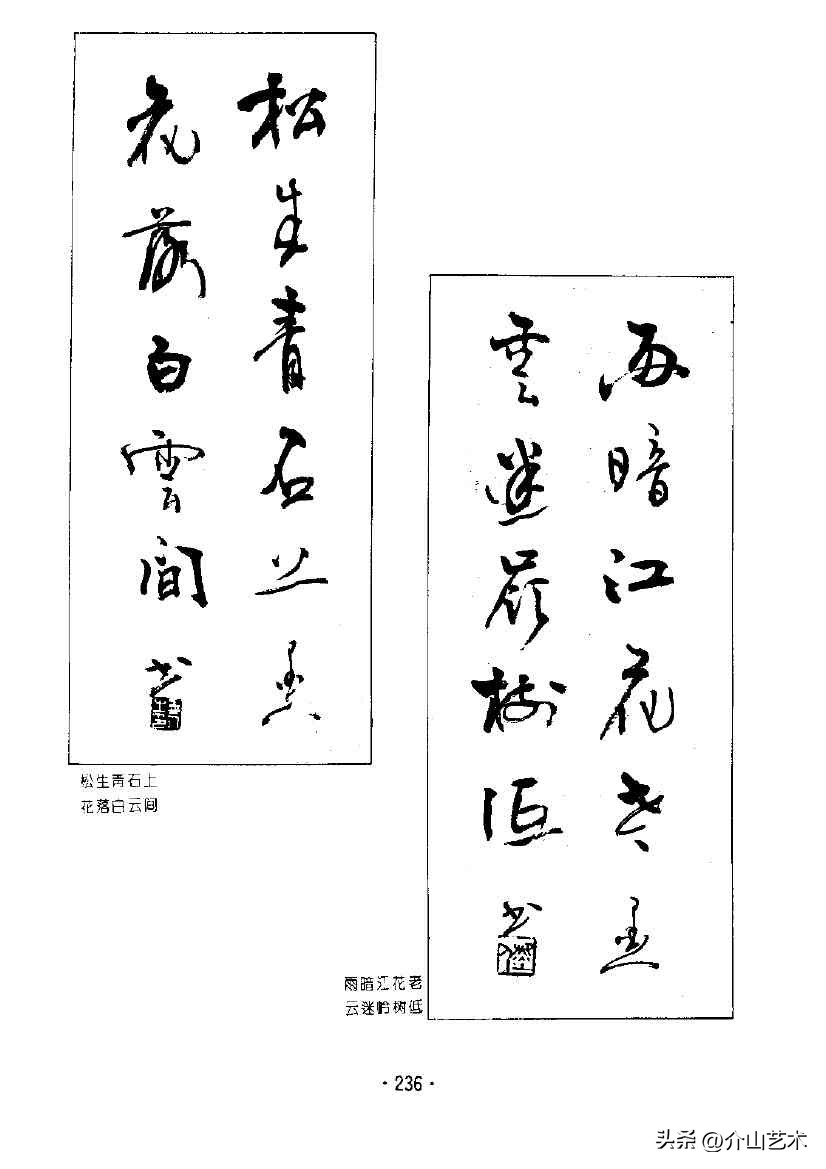 松生青石上
花落白雲间
书
松生青石上
花落白云间
雨暗江花老
雲迷岭树低
书
雨暗江花老
云迷岭树低
·236·
头条 @介山艺术